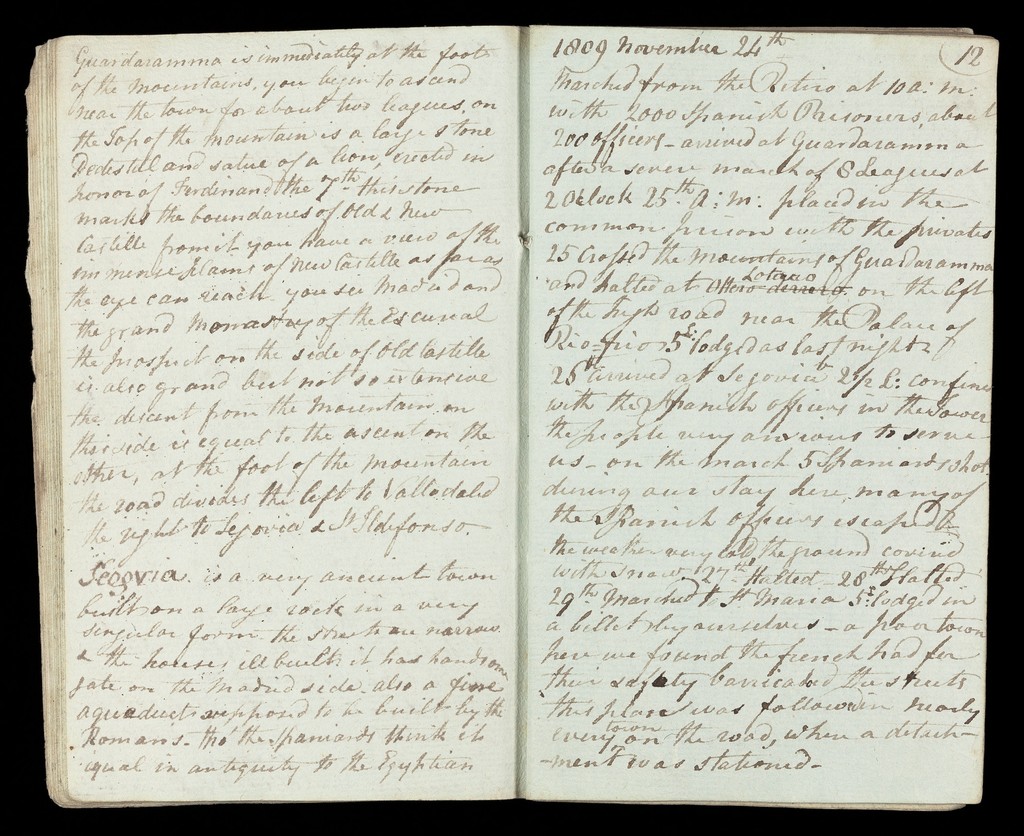 Guardaramma is immediately at the foot
of the mountains, you begin to ascend
near the town for about two leagues. on
the Top of the mountain is a large stone
Pedestal and satue of a lion, erected in
honor of Ferdinand the 7th this stone
marks the boundaries of Old & New
Castille from it you have a view of the
immense plains of New Castille as far as
the eye can reach you see Madrid and
the grand Monastry of the Escurial
the prospect on the side of Old Castille
is also grand but not so extensive
the descent from the mountain on
this side is equal to the ascent on the
other, at the foot of the mountain
the road divides the left to Valladolid
the right to Segovia & St Ildefonso.
Segovia is a very ancient town
built on a large rock in a very
singular form the streets are narrow
& the houses ill built it has handsome
gate on the Madrid side also a fine
aqueduct supposd to be built by the
Romans - tho' the Spaniards think it
equal in antiquity to the Egyptian
12
1809 November 24th
Marched from the Retiro at 10 a: m:
with 2000 Spanish Prisoners, about
200 officers - arrived at Guardaramma
after a severe march of 8 Leagues at
2 Oclock 25th a: m: placed in the
common prison with the privates
25 Crossed the mountains of Guardaramma
and halted at Otero on the left
of the high road near the Palace of
Rio-frio 5 L: lodged as last night
26 arrived at Segovia 2 1/2 L: confined
with the Spanish officers in the Tower
the people very anxious to serve
us - on the march 5 Spaniards shot
during our stay here many of
the Spanish officers escaped
the weather very cold, the ground coverd
with snow 27th Halted - 28th Halted
29th Marched to St Maria 5 L: lodged in
a billet by ourselves - a poor town
here we found the french had for
their safety barricaded the streets
this plan was followd in nearly
every town on the road, where a detach-
-ment was stationed -